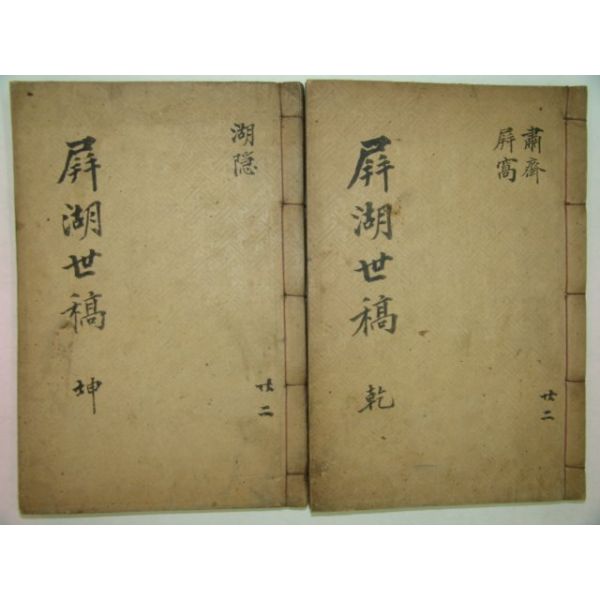 肅齊
屛窩
屛湖世稿 乾
共二
湖隱
屛湖世稿 坤
共二